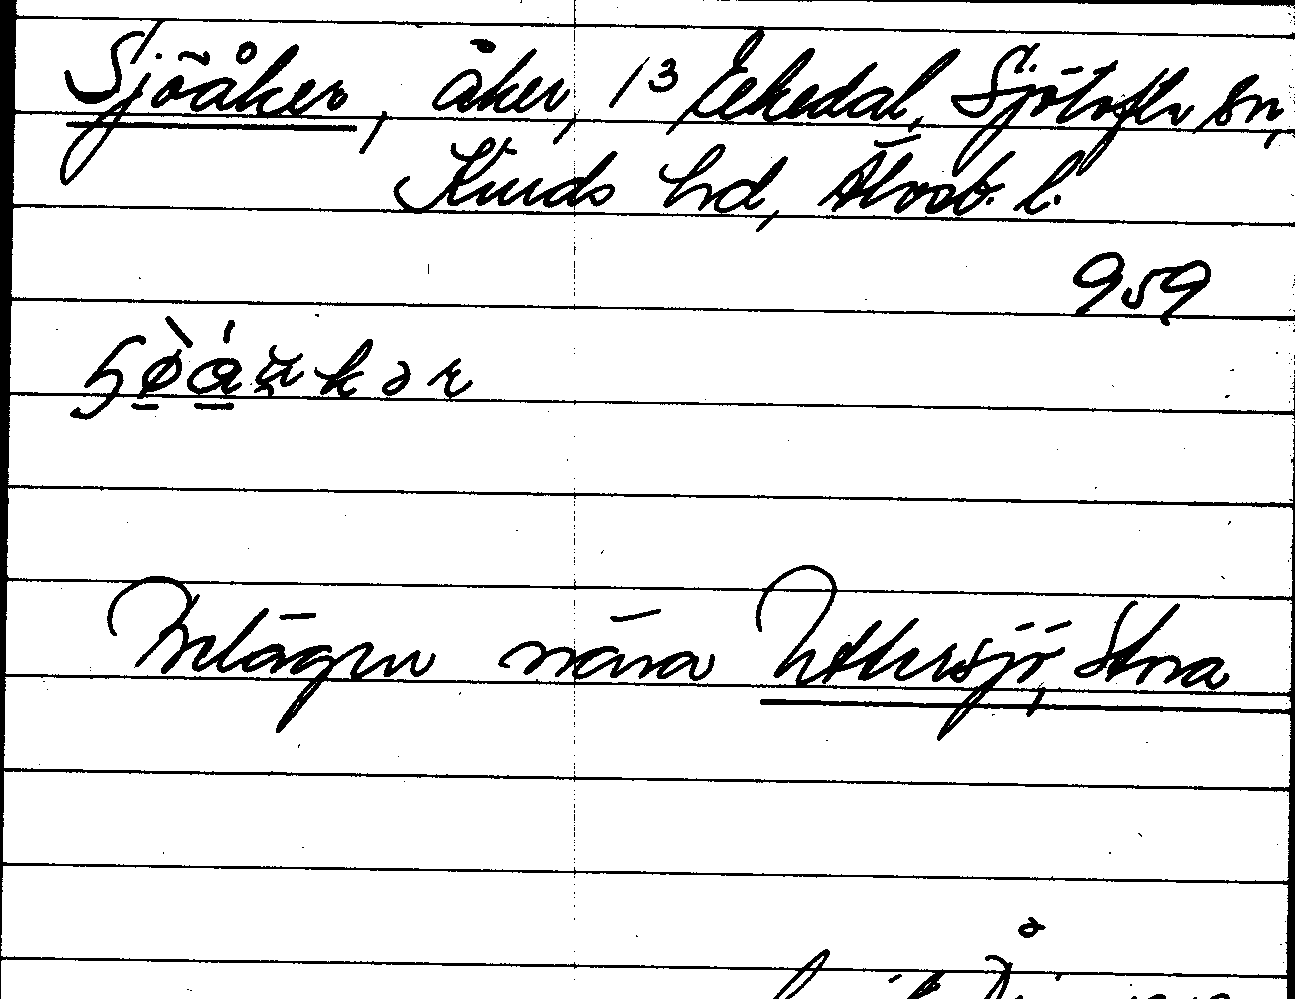 Sjöåker, åker, 1³ Ekedal, Sjötofta sn,
Kinds hd, Älvsb. l.
959
Belägen nära Uttersjö, Stora